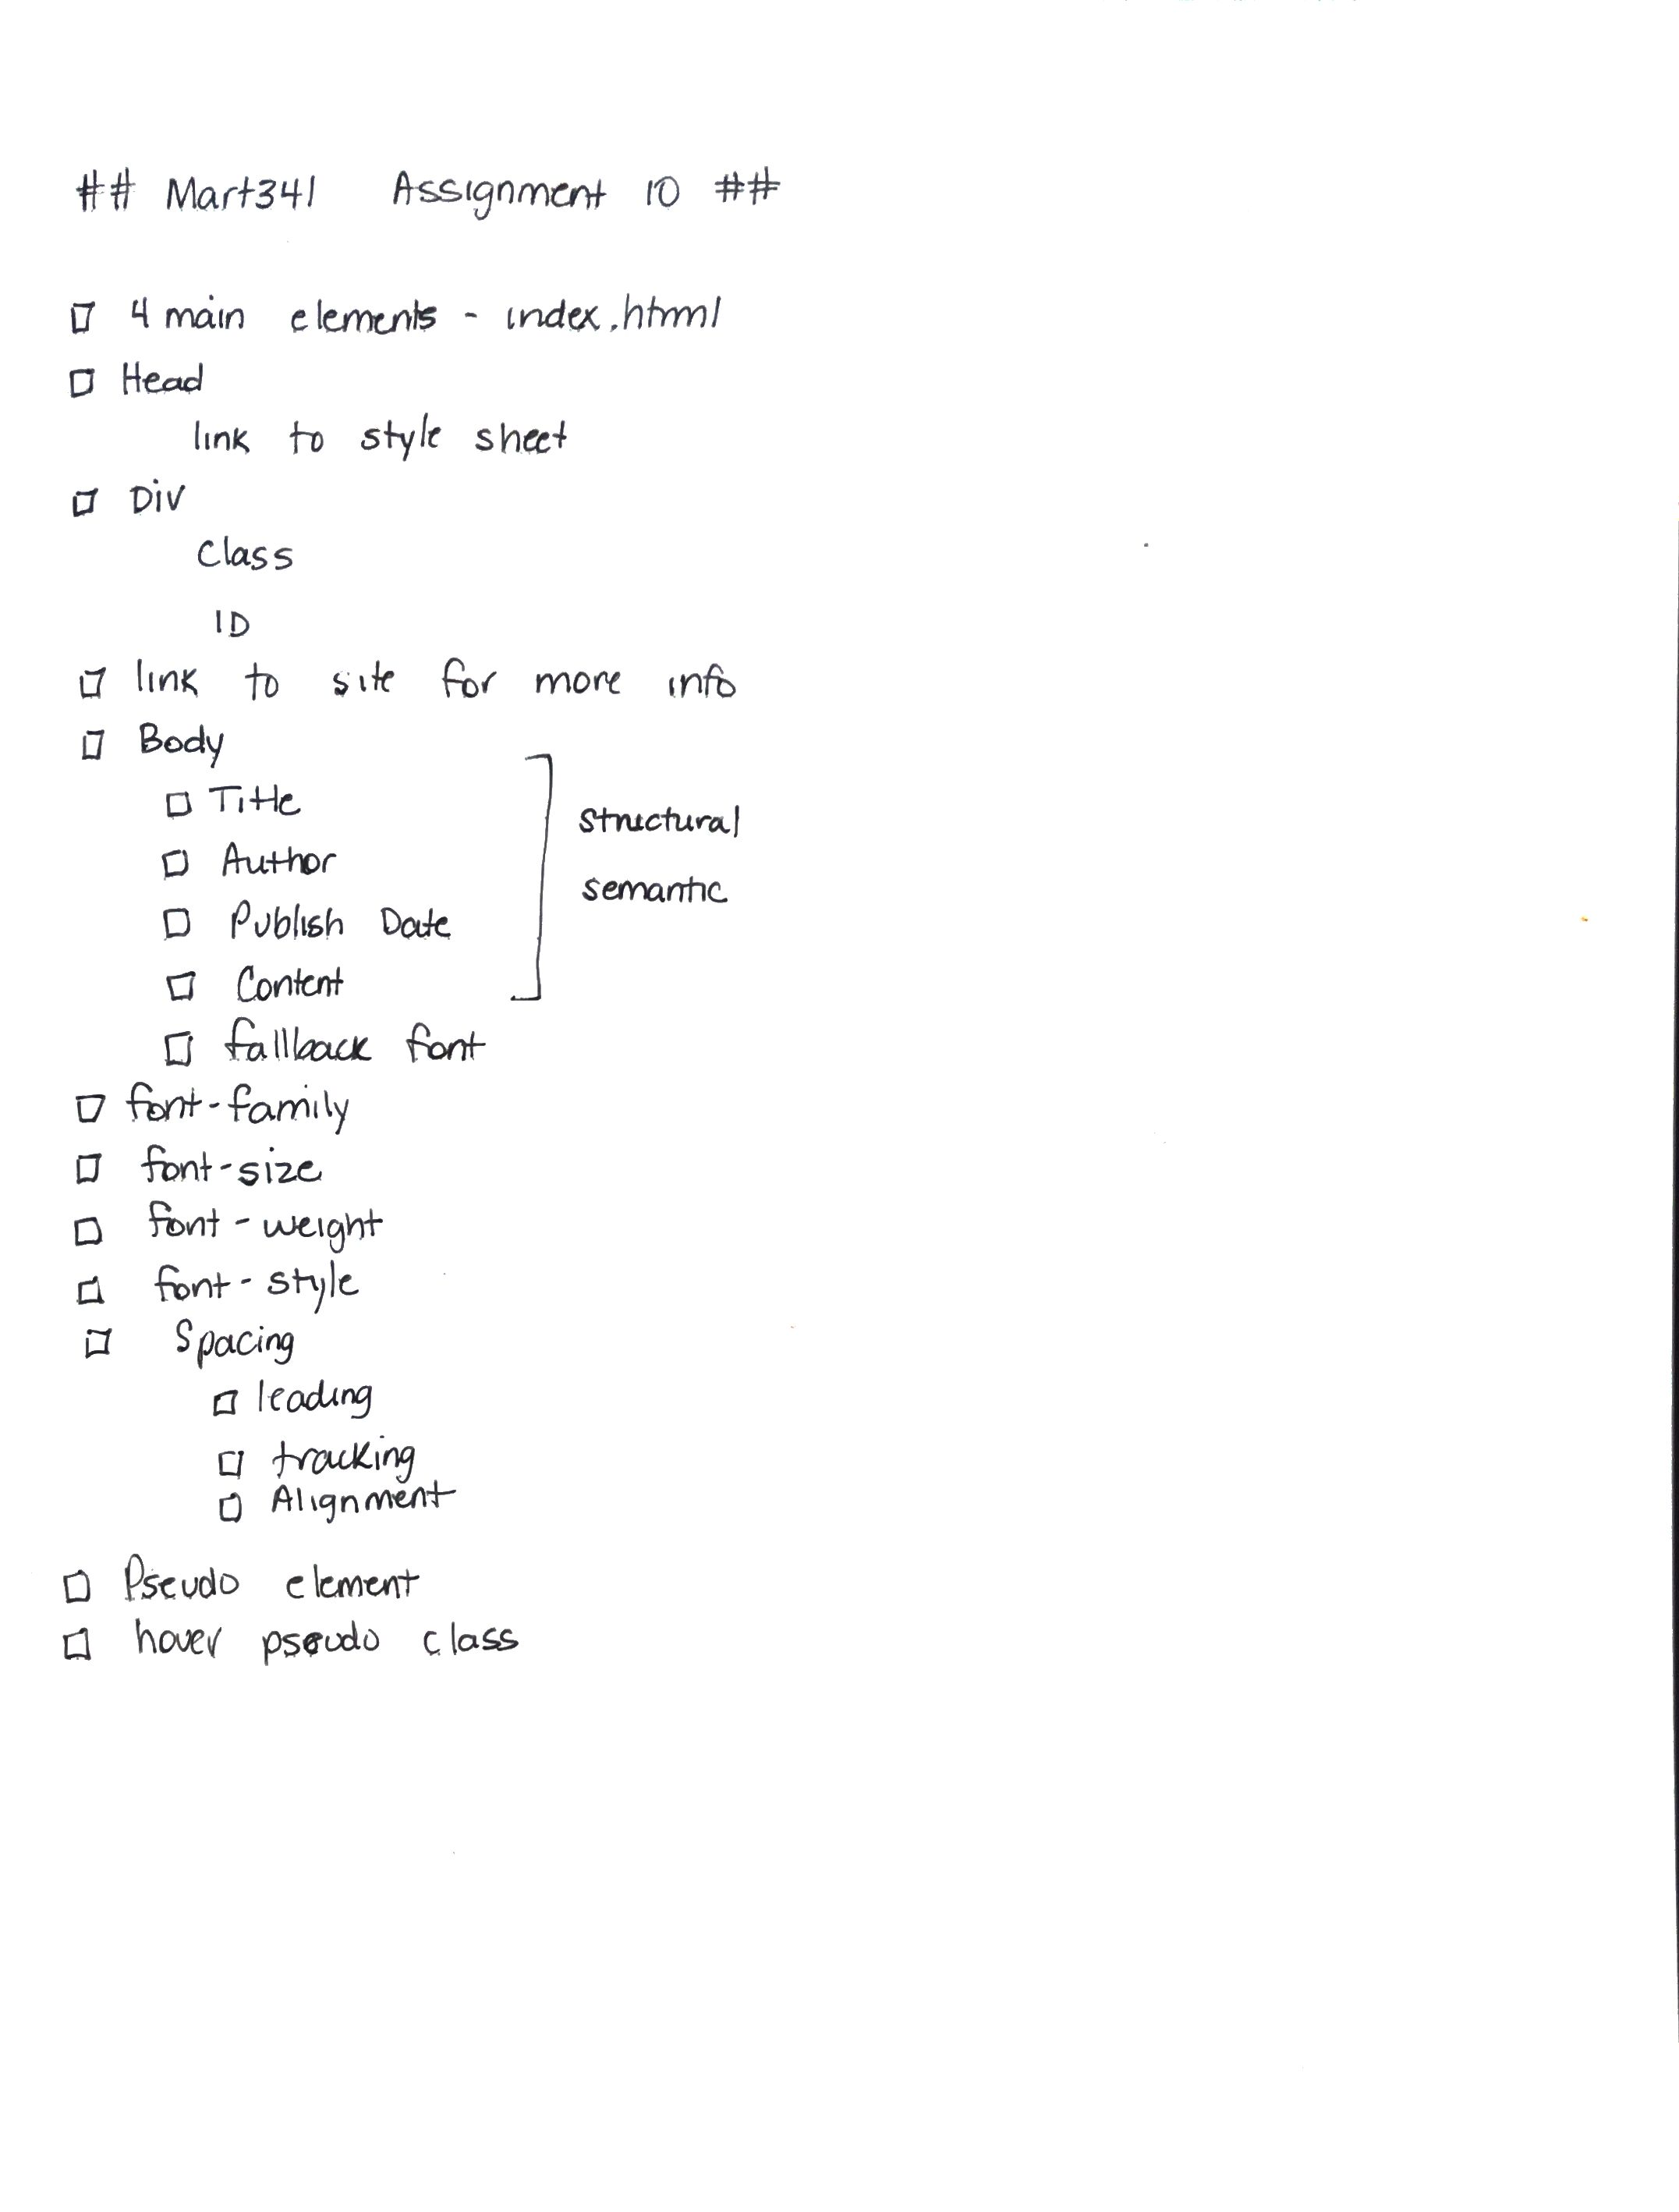 ## Mart341 Assignment 10 ##
4 main elements - index.html
Head
link to style sheet
Div
Class
ID
link to site for more info
Body
Title
Author
Publish Date
Content
structural
semantic
fallback font
font-family
font-size
font-weight
font-style
Spacing
leading
tracking
Alignment
Pseudo element
hover pseudo class